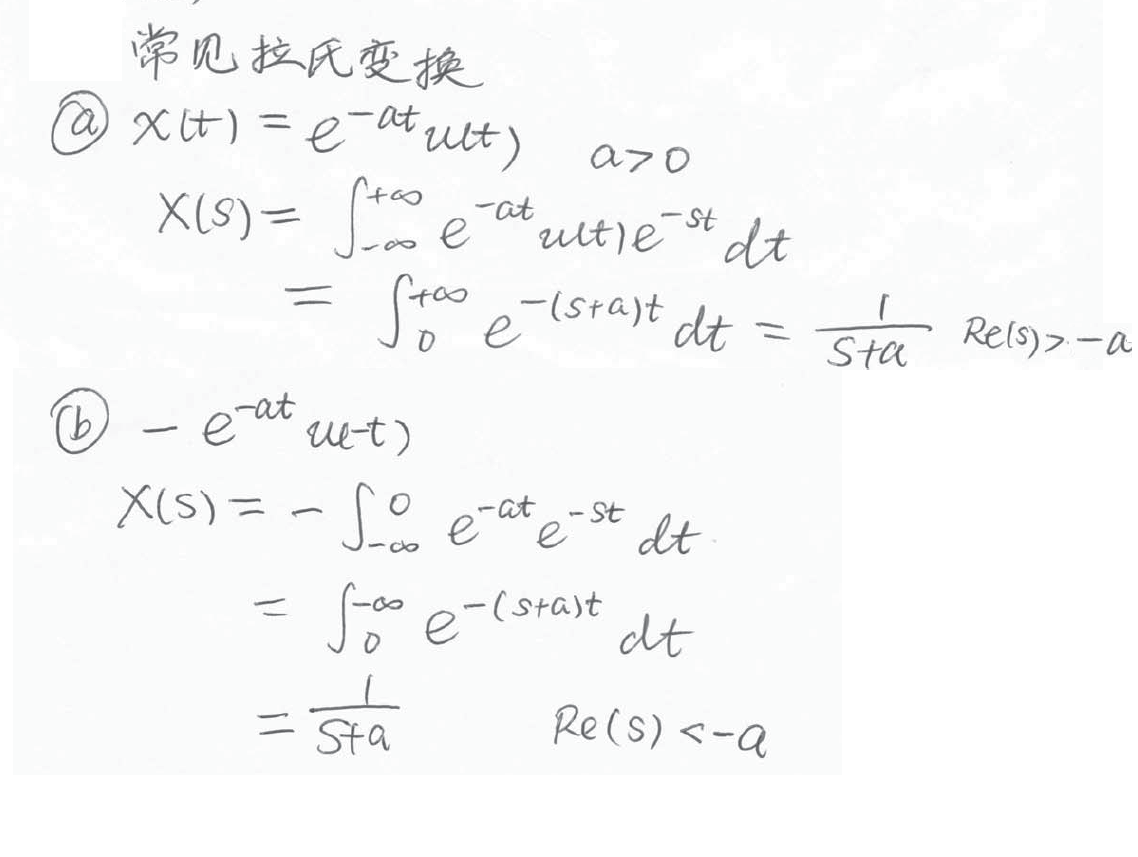 常见拉氏变换
ⓐ x(t) = e^{-at} u(t)   a>0
X(s) = ∫_{-∞}^{+∞} e^{-at} u(t) e^{-st} dt
= ∫_{0}^{+∞} e^{-(s+a)t} dt = \frac{1}{s+a}   Re(s) > -a
ⓑ - e^{-at} u(-t)
X(s) = - ∫_{-∞}^{0} e^{-at} e^{-st} dt
= ∫_{0}^{-∞} e^{-(s+a)t} dt
= \frac{1}{s+a}   Re(s) < -a